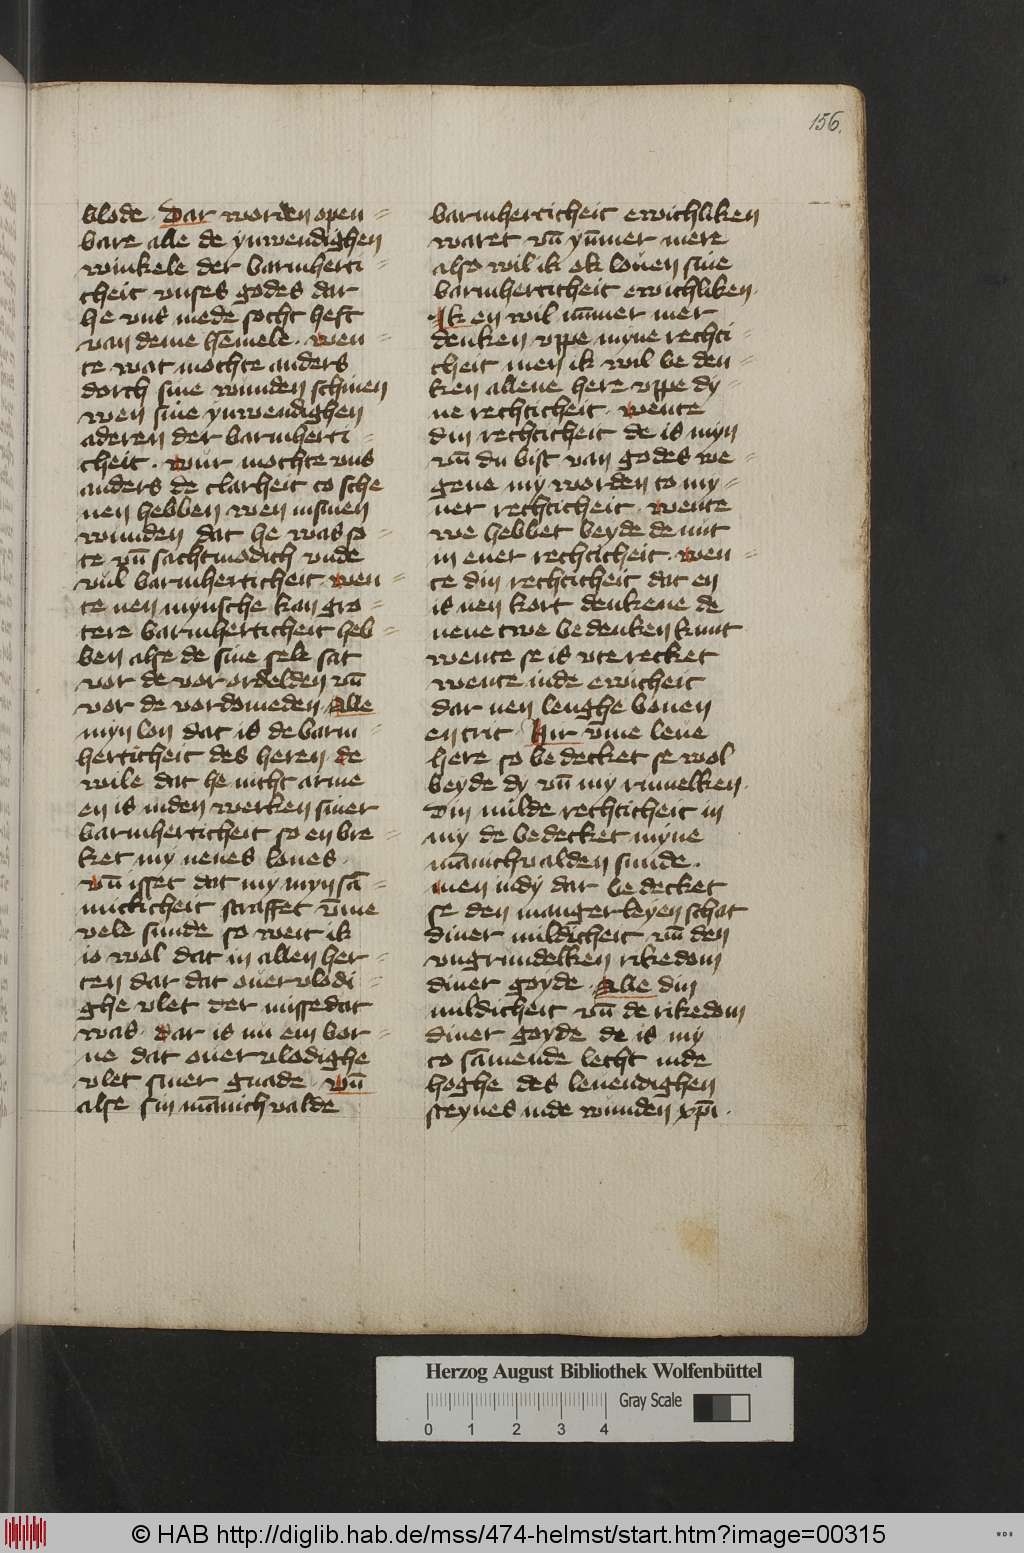 156.
blode · Dar worden open=
bare alle de ynwendighen
winkele der barmherti=
cheit vnses godes dar
he vns mede socht heft
van deme hēmele · wen=
te wat mochte anders
dorch sine wunden schinen
wen sine ynwendighen
aderen der barmherti=
cheit · wur mochte vns
anders de clarheit to sche
nen hebben wen insinen
wunden dat he was so=
te vn̄ sachtmodich vnde
vul barmherticheit · wen=
te nen mynsche kan gro=
tere barmherticheit heb=
ben alse de sine sele sat
vor de vor ordelden vn̄
vor de vordomeden · Alle
myn lon dat is de barm=
herticheit des heren · de
wile dat he nicht arme
en is inden werken siner
barmherticheit so en bre=
ket my nenes lones ·
vn̄ isset dat my myn sā=
mickicheit straffet v̄me
vele sunde so weit ik
io wol dat in allen her=
ten dar dat ouervlodi=
ghe vlet der missedat
was · dar is nu ein bor=
ne dat ouervlodighe
vlet siner gnade · vn̄
alse sin mānichvalde
barmherticheit ewichliken
waret vn̄ yūmer mere
also wil ik ok louen sine
barmherticheit ewichliken ·
Ik en wil nūmer mer
denken vppe myne rechti=
cheit men ik wil be den=
ken allene here vppe dy=
ne rechticheit · wente
din rechticheit de is myn
vn̄ du bist van godes we=
gene my worden to my=
ner rechticheit · wente
we hebbet beyde de mit
in ener rechticheit · wen=
te din rechticheit dat en
is nen kort denkene de
nene twe bedenken kunt
wente se is vterecket
wente inde ewicheit
dar nen lenghe bouen
en trit · Hir v̄me leue
here so bedecket se wol
beyde dy vn̄ my rimelken ·
Din milde rechticheit in
my de bedecket myne
mānichvalden sunde ·
men indy dar bedecket
se den mangerleyen schat
diner mildicheit vn̄ den
vngrundelken rikedom
diner goyde · Alle din
mildicheit vn̄ de rikedom
diner goyde de is my
to sāmende lecht inde
hoghe des leuendighen
steynes inde wunden xp̄i ·
Herzog August Bibliothek Wolfenbüttel
Gray Scale
0 1 2 3 4
© HAB http://diglib.hab.de/mss/474-helmst/start.htm?image=00315
WDB